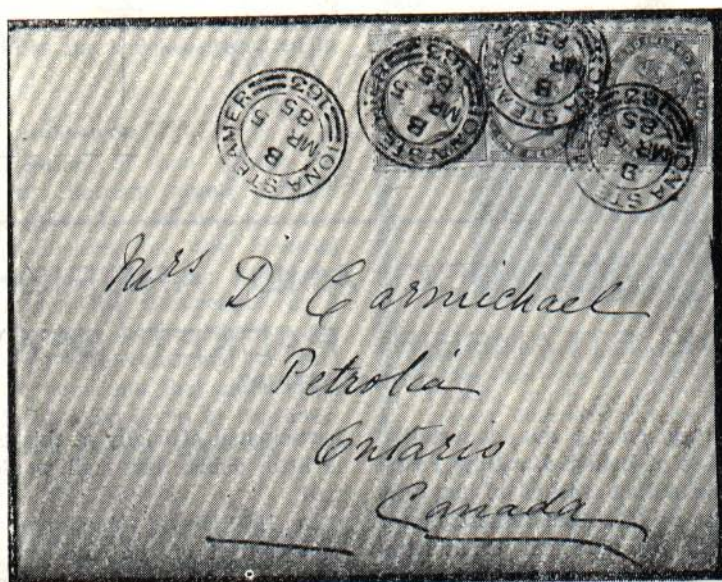 IONA STEAMER 163
B
MR 5
85
IONA STEAMER 163
B
MR 5
85
IONA STEAMER
B
MR 5
85
IONA STE 163
B
MR
85
Mrs D Carmichael
Petrolia
Ontario
Canada